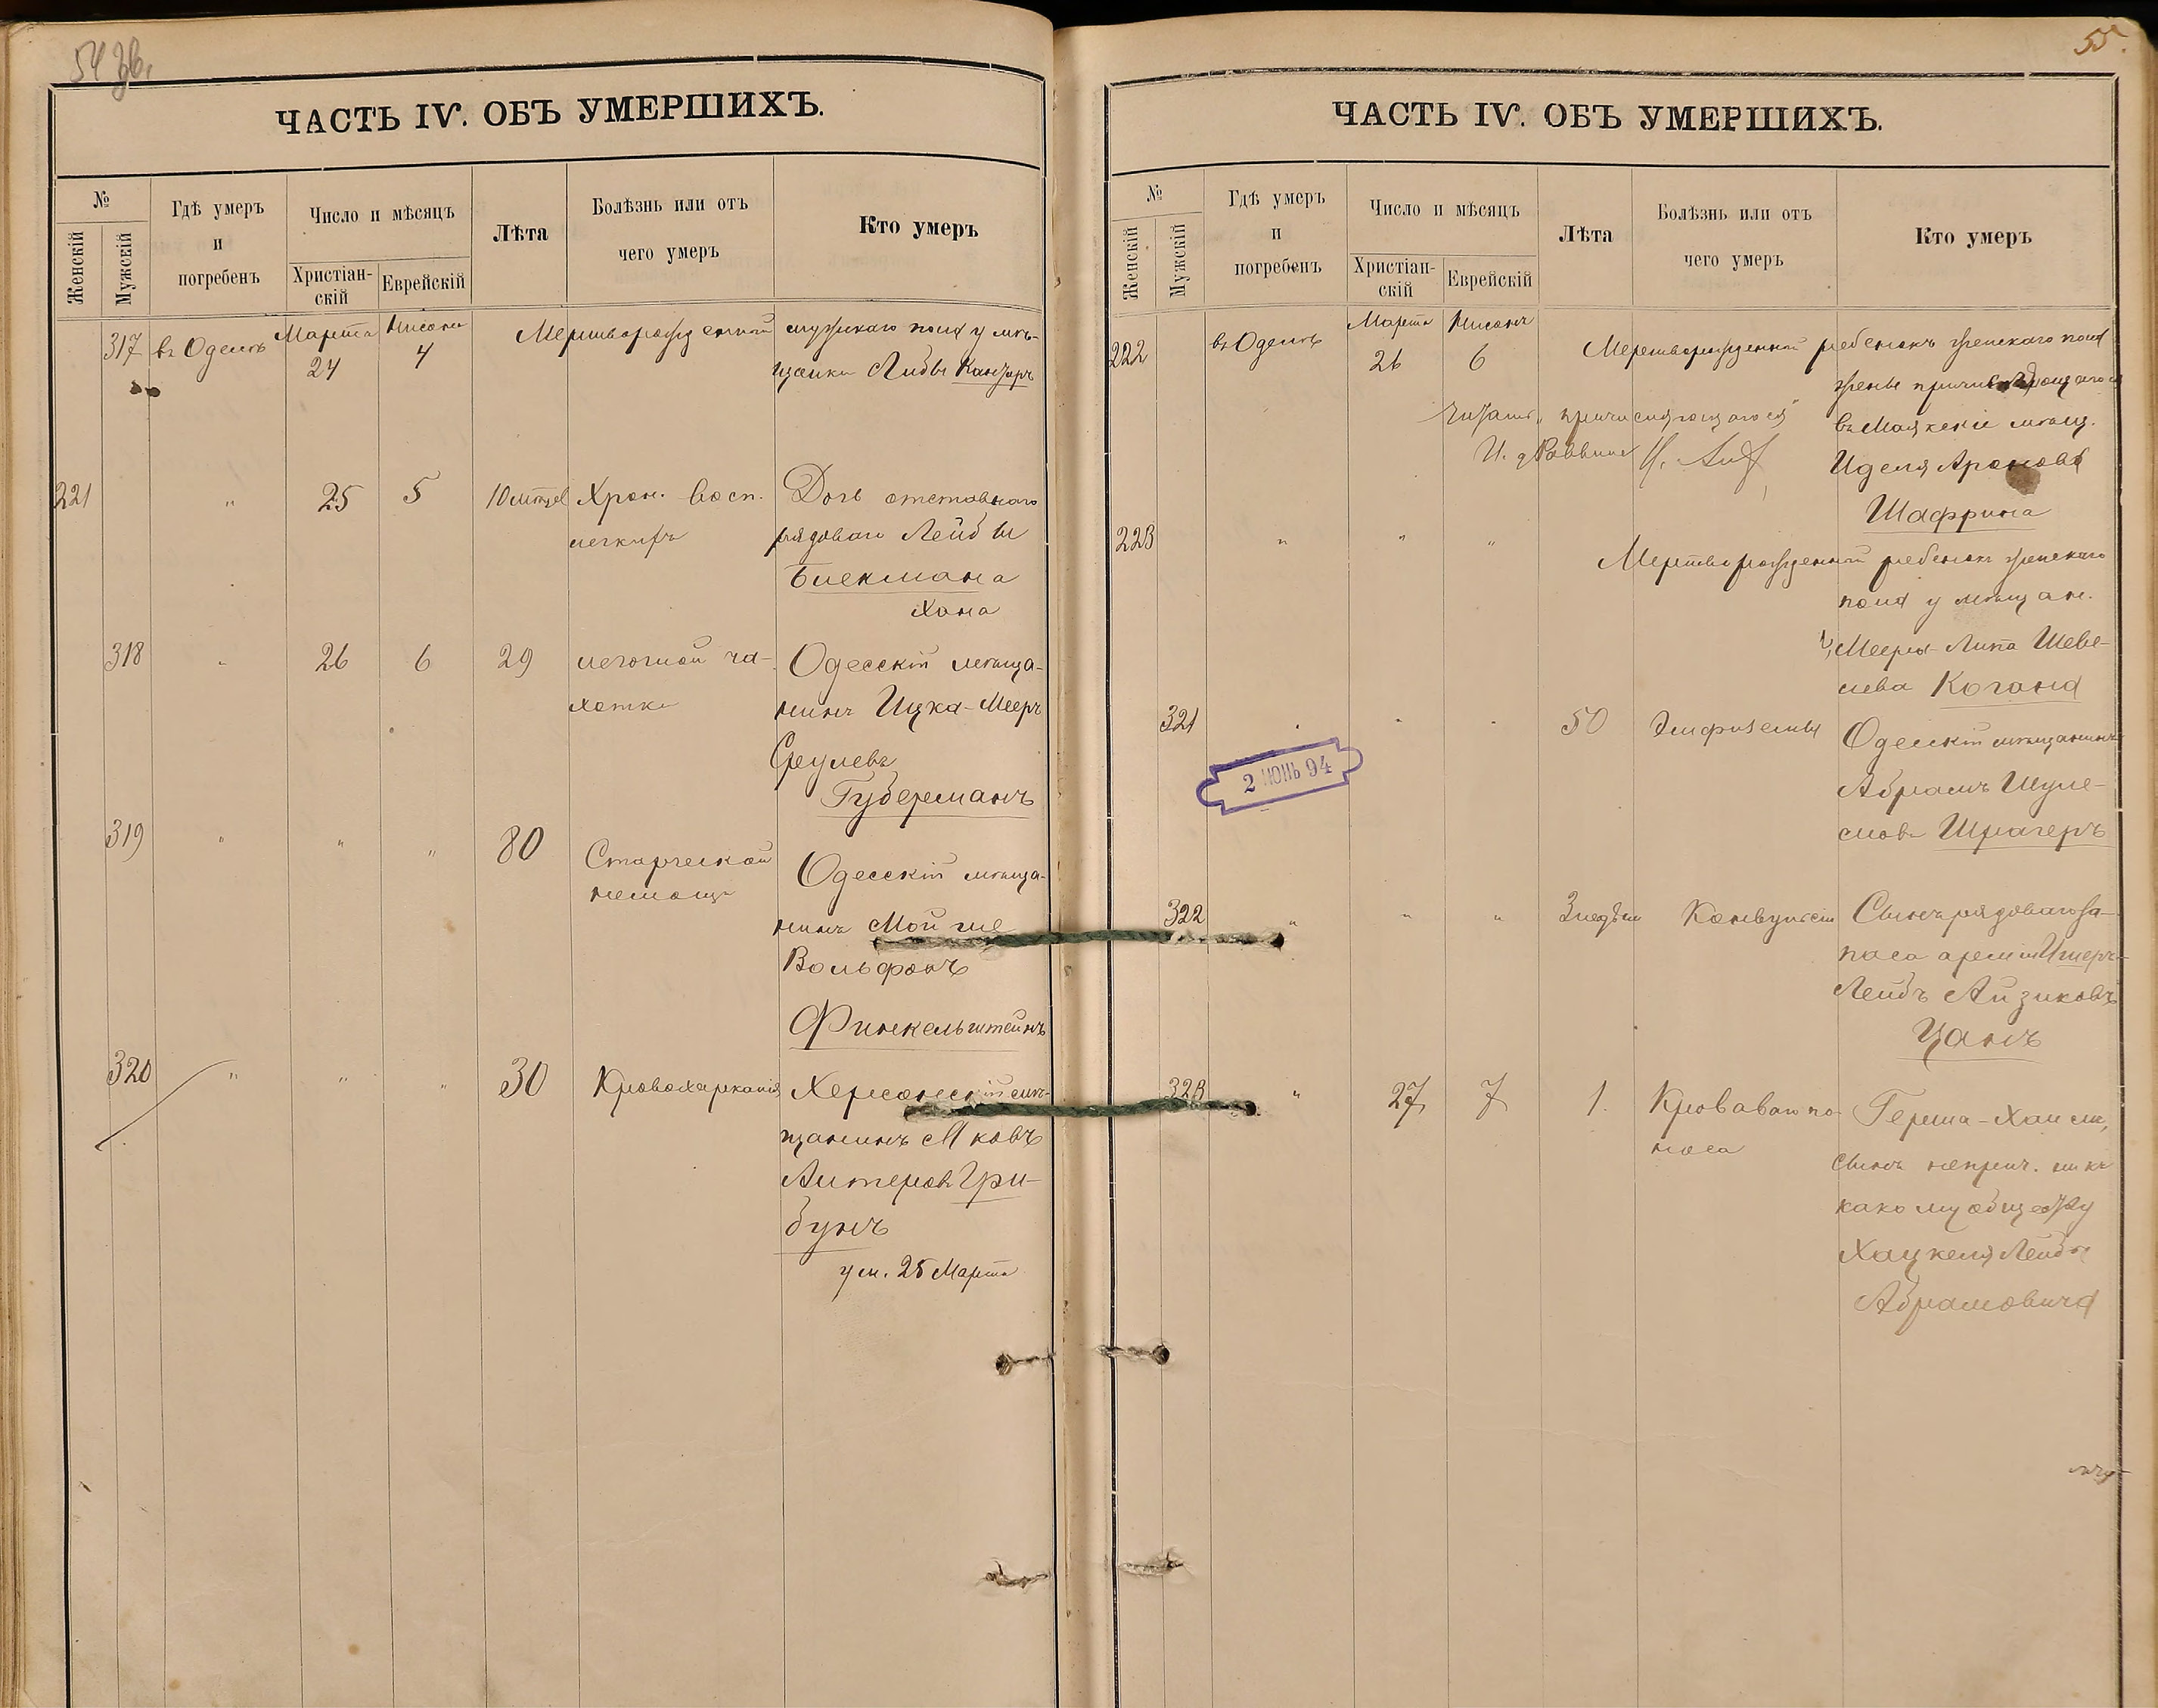 54 зв.
ЧАСТЬ IV. ОБЪ УМЕРШИХЪ.
№
Женскій
Мужскій
Гдѣ умеръ
и
погребенъ
Число и мѣсяцъ
Христіан-
скій
Еврейскій
Лѣта
Болѣзнь или отъ
чего умеръ
Кто умеръ
317 въ Одессѣ Марта 24 Нисана 4 Мертворожденный мужскаго пола у мѣ-
щанки Либы Канзеръ
221 " 25 5 10 мѣсяц Хрон. восп. Дочь отставнаго
легкихъ рядоваго Лейбы
Блекмана
Хана
318 " 26 6 29 легочной ча- Одесскій мѣща-
хотки нинъ Ицка-Мееръ
Срулевъ
Губерманъ
319 " " " 80 Старческой Одесскій мѣща-
немощи нинъ Мойше
Вольфовъ
Финкельштейнъ
320 " " " 30 Кровохарканія Херсонскій мѣ-
щанинъ
Алтеровъ Гри-
бунъ
ум. 25 Марта
55
ЧАСТЬ IV. ОБЪ УМЕРШИХЪ.
№
Женскій
Мужскій
Гдѣ умеръ
и
погребенъ
Число и мѣсяцъ
Христіан-
скій
Еврейскій
Лѣта
Болѣзнь или отъ
чего умеръ
Кто умеръ
222 въ Одессѣ Марта 26 Нисанъ 6 Мертворожденный ребенокъ женскаго пола
жены причисляющагося
причисляющагося" въ Маякскіе мѣщ.
И. д. Раввина Иделя Аронова
Шафрина
223 " " " Мертворожденный ребенокъ женскаго
пола у мѣщан.
Меера-Липа Шеве-
лева Когана
321 " " " 50 Эмфиземы Одесскій мѣщанинъ
Абрамъ Шуле-
мовъ Шрагеръ
2 ІЮНЬ 94
322 " " " 3 недѣли Конвульсіи Сынъ рядоваго за-
паса арміи Ушеръ-
Лейбъ Айзиковъ
Цанъ
323 " 27 7 1. Кроваваго по- Герша-Хаим,
носа сынъ неприч. ни къ
какому обществу
Хацкеля Лейбы
Абрамовича